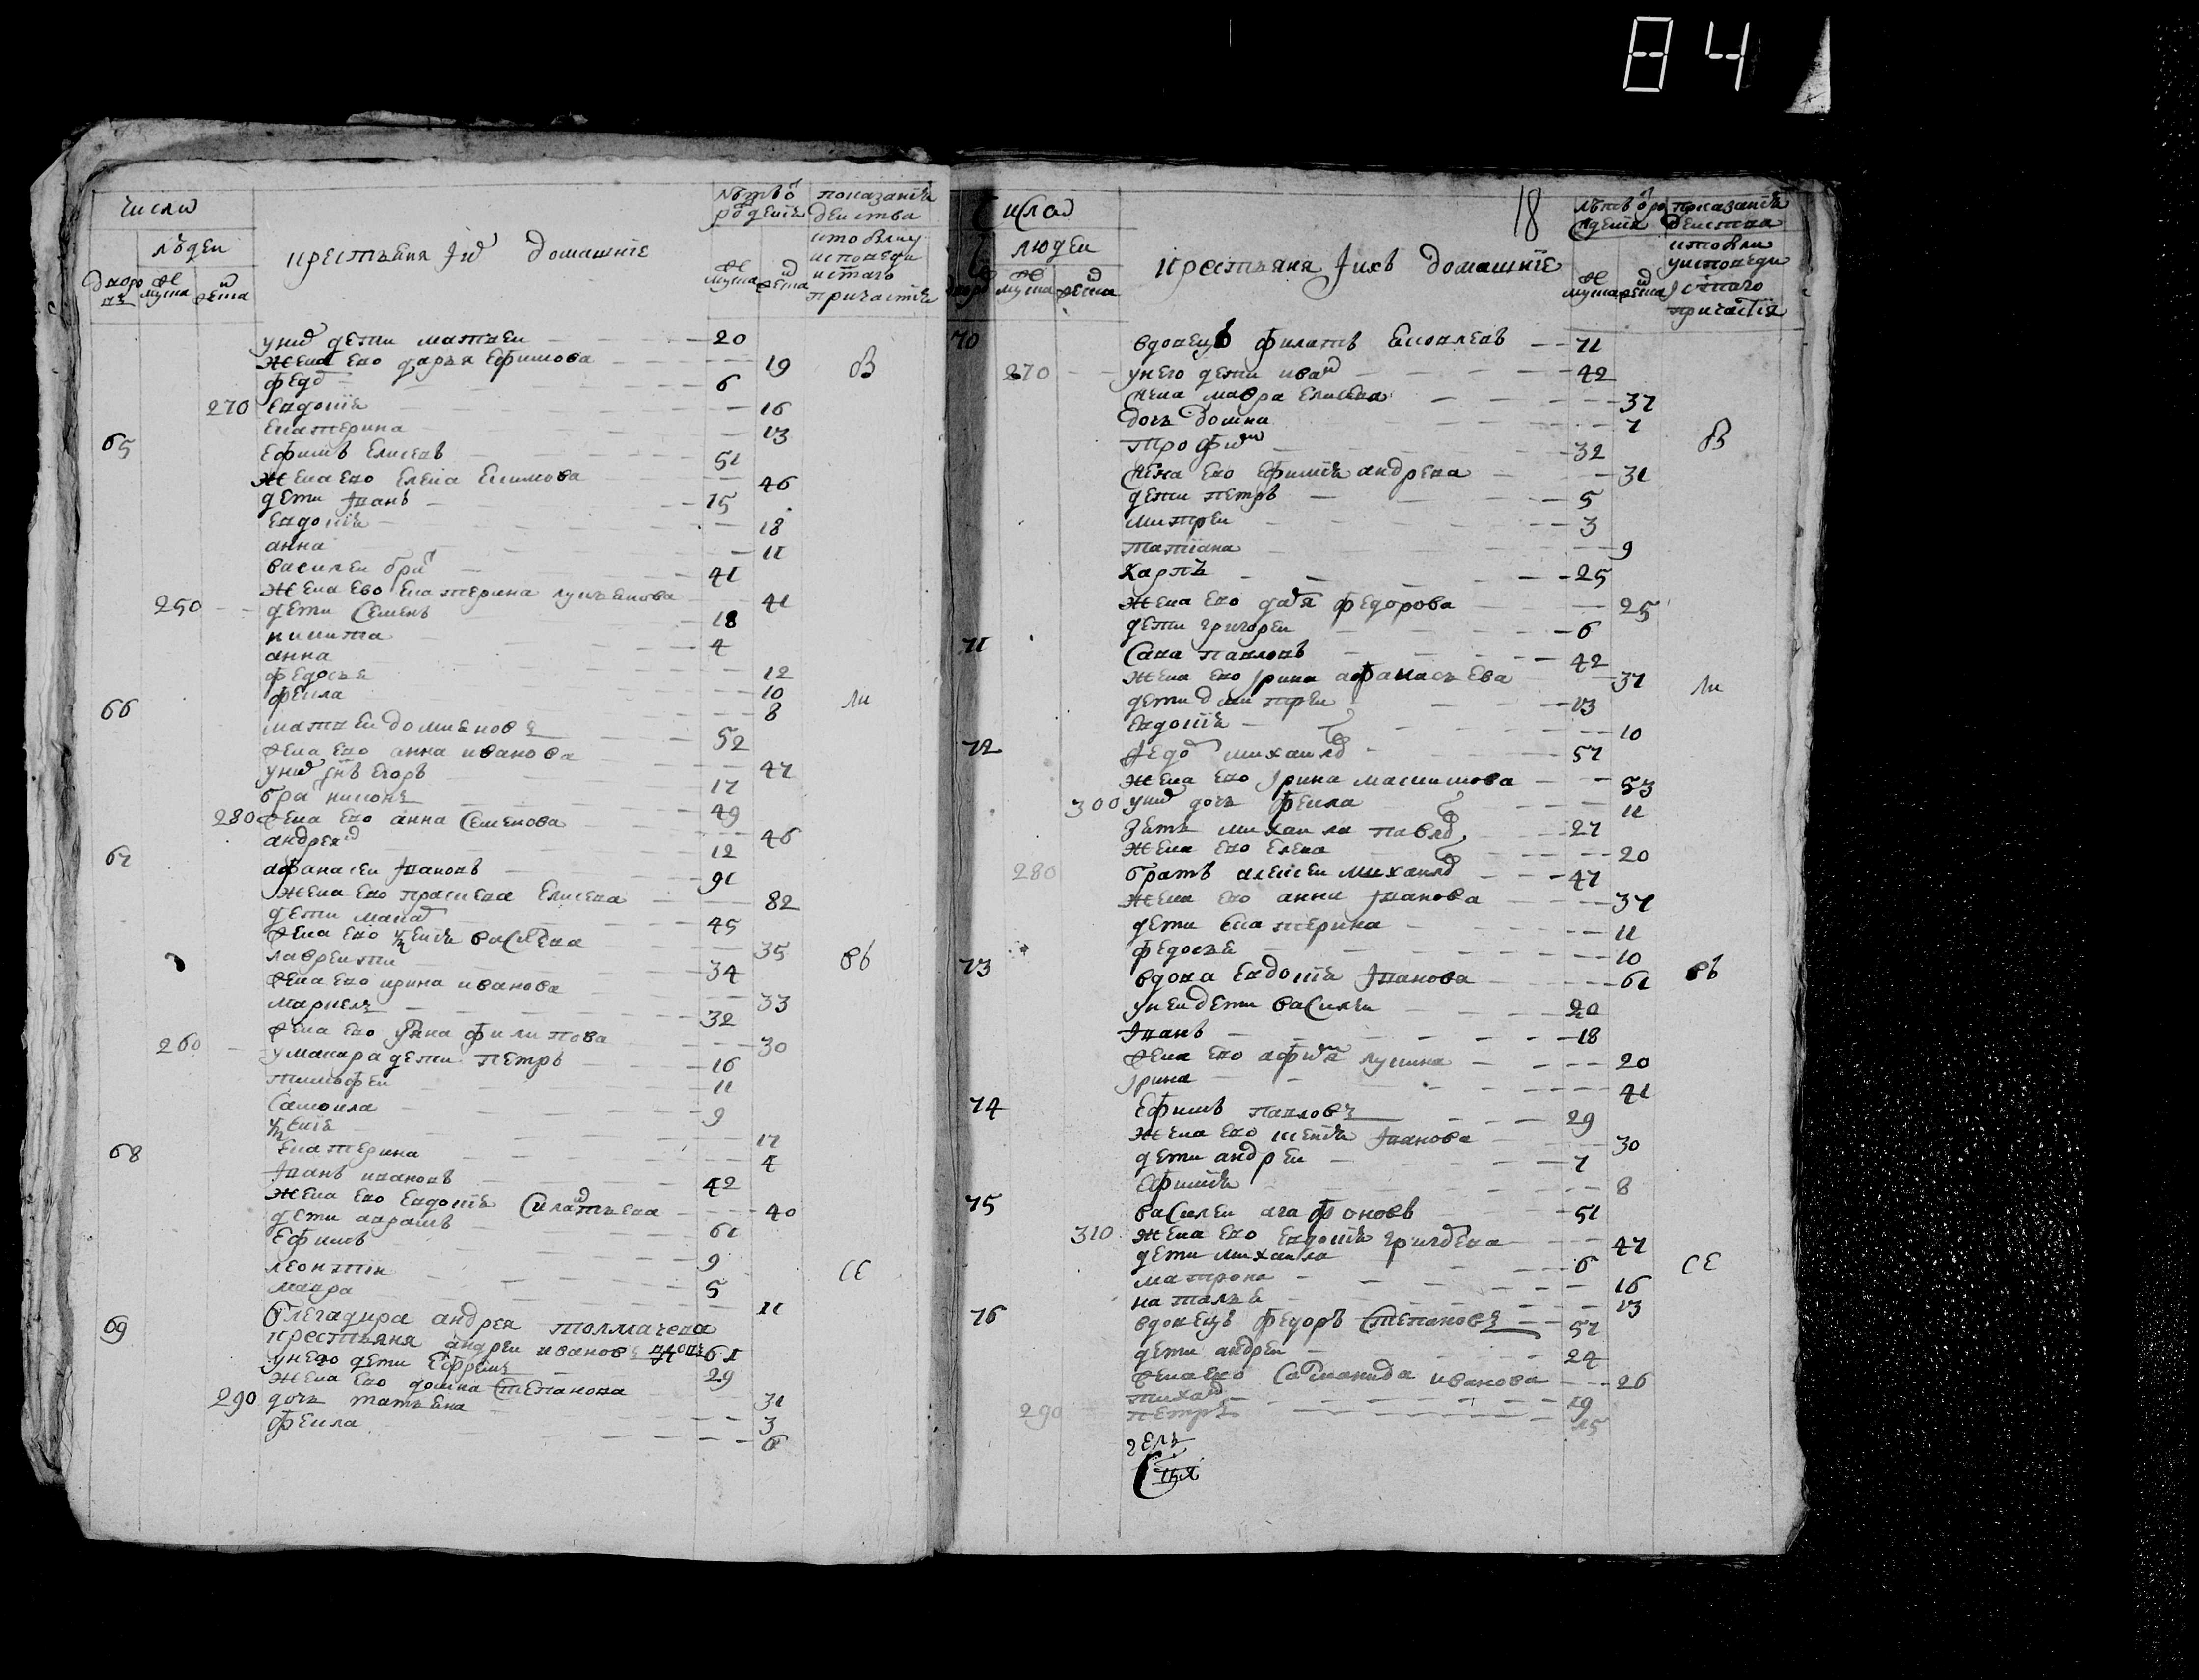 84
число
людеи
дворовъ
мужеска
женска
крестьяня их домашние
лѣтъ от рождения
мужеска
женска
показание действа
кто был у исповеди и с̃таго причастия
у них дети матвеи 20
жена ево дарья ефимова 19 бы
федо 6
270 евдокия 16
екатерина 13
65 ефимъ елисеевъ 51
жена ево елена екимова 46
дети Іванъ 15
евдокия 18
анна 11
василеи бра 41
жена ево екатерина лукьянова 41
250 дети семенъ 18
никита 4
анна 12
федосья 10 ли
фекла 8
66 матвеи домиянов 52
жена ево анна иванова 47
у них снъ егоръ 17
бра никон 49
280 жена ево анна семенова 46
андреян 12
67 афанасеи Івановъ 91
жена ево прасковя елисеева 82
дети мака 45
жена ево ксения васильева 35
лаврентеи 34 въ
жена ево ирина иванова 33
маркел 32
жена ево уляна филипова 30
260 у макара дети петръ 16
тимофеи 11
самоила 9
ксения 17
екатерина 4
68 Іванъ ивановъ 42
жена ево евдокия силантьева 40
дети аврамъ 61
ефимъ 9
леонтеи 5 се
мавра 11
олегадира андрея толмачева
69 крестьяня андреи иванов вдовец 61
у него дети ефрем 29
жена ево домна степанова 31
290 дочь татьяна 3
фекла 6
18
число
людеи
мужеска
женска
крестьяня Іихъ домашние
лѣтъ от рождения
мужеска
женска
показание действа
кто были у исповеди и с̃таго причастия
70 вдовецъ филатъ яковлевъ 71
270 у него дети иван 42
жена мавра елисеева 37
дочь домна 7 бы
трофим 32
жена ево ефимия андреева 31
дети петръ 5
митреи 3
татиана 9
карпъ 25
жена ево дарья федорова 25
дети григореи 6
71 сава павловъ 42
жена ево Ірина афанасьева 37 ли
дети дмитреи 13
евдокия 10
72 федо михаилов 57
жена ево Ірина максимова 53
300 у них дочь фекла 11
зять михаила павлов 27
жена ево елена 20
280 братъ алексеи михаилов 47
жена ево анна Іванова 37
дети екатерина 11
федосья 10
73 вдова евдокия Іванова 61 въ
у неи дети василеи 20
Іванъ 18
жена ево афимя лукина 20
Ірина 41
74 ефимъ павловъ 29
жена ево ксения Іванова 30
дети андреи 7
ефимия 8
75 василеи агафоновъ 51
310 жена ево евдокия григорева 47
дети михаила 6 се
матрона 16
наталья 13
76 вдовецъ федоръ степановъ 57
дети андреи 24
жена ево саломанида иванова 26
тихан 19
290 петръ 15